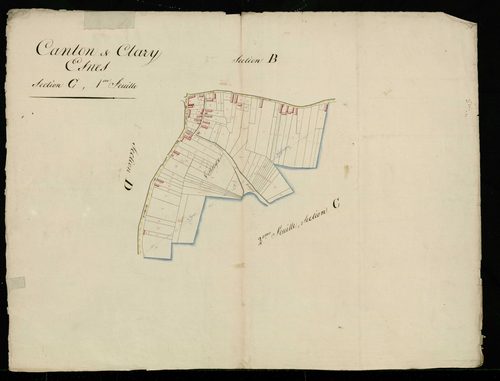 Canton de Clary
Esnes
Section C, 1ère Feuille
Section B
Section D
2ème Feuille, Section C